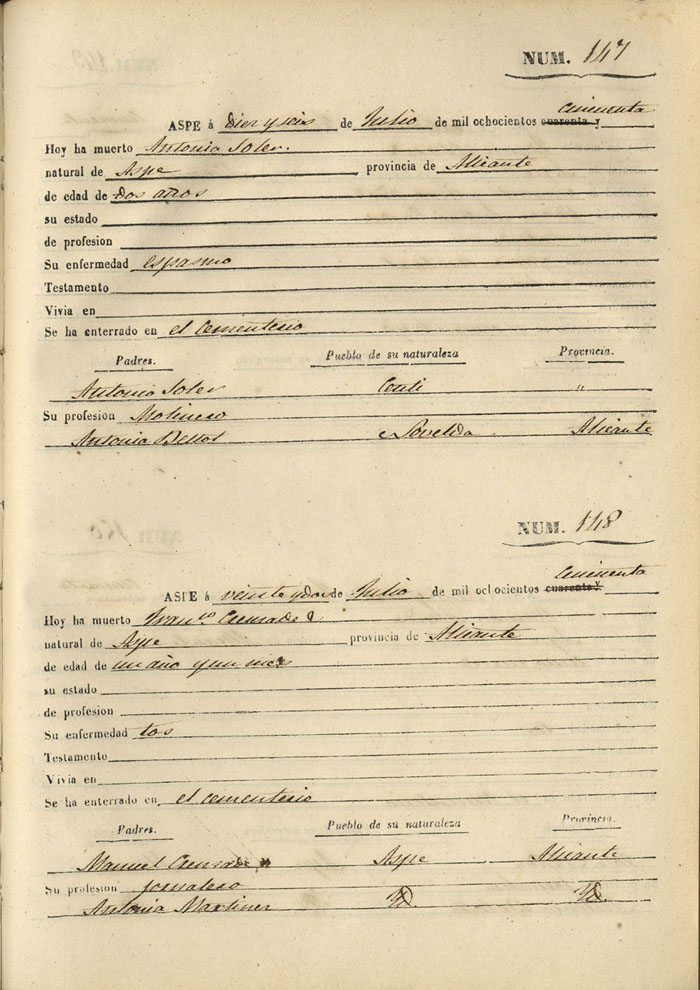 NUM. 147
ASPE á diez y seis de Julio de mil ochocientos cuarenta y cincuenta
Hoy ha muerto Antonia Soler.
natural de Aspe provincia de Alicante
de edad de dos años
su estado
de profesion
Su enfermedad espasmo
Testamento
Vivia en
Se ha enterrado en el Cementerio
Padres. Pueblo de su naturaleza Provincia.
Antonio Soler Ceuti "
Su profesion Molinero
Antonia Bellot Novelda Alicante
NUM. 148
ASPE á veinte y dos de Julio de mil ochocientos cuarenta y cincuenta
Hoy ha muerto Fran.co
natural de Aspe provincia de Alicante
de edad de un año y un mes
su estado
de profesion
Su enfermedad tos
Testamento
Vivia en
Se ha enterrado en el cementerio
Padres. Pueblo de su naturaleza Provincia.
Manuel Aspe Alicante
Su profesion jornalero
Antonia Martinez Yd. Yd.